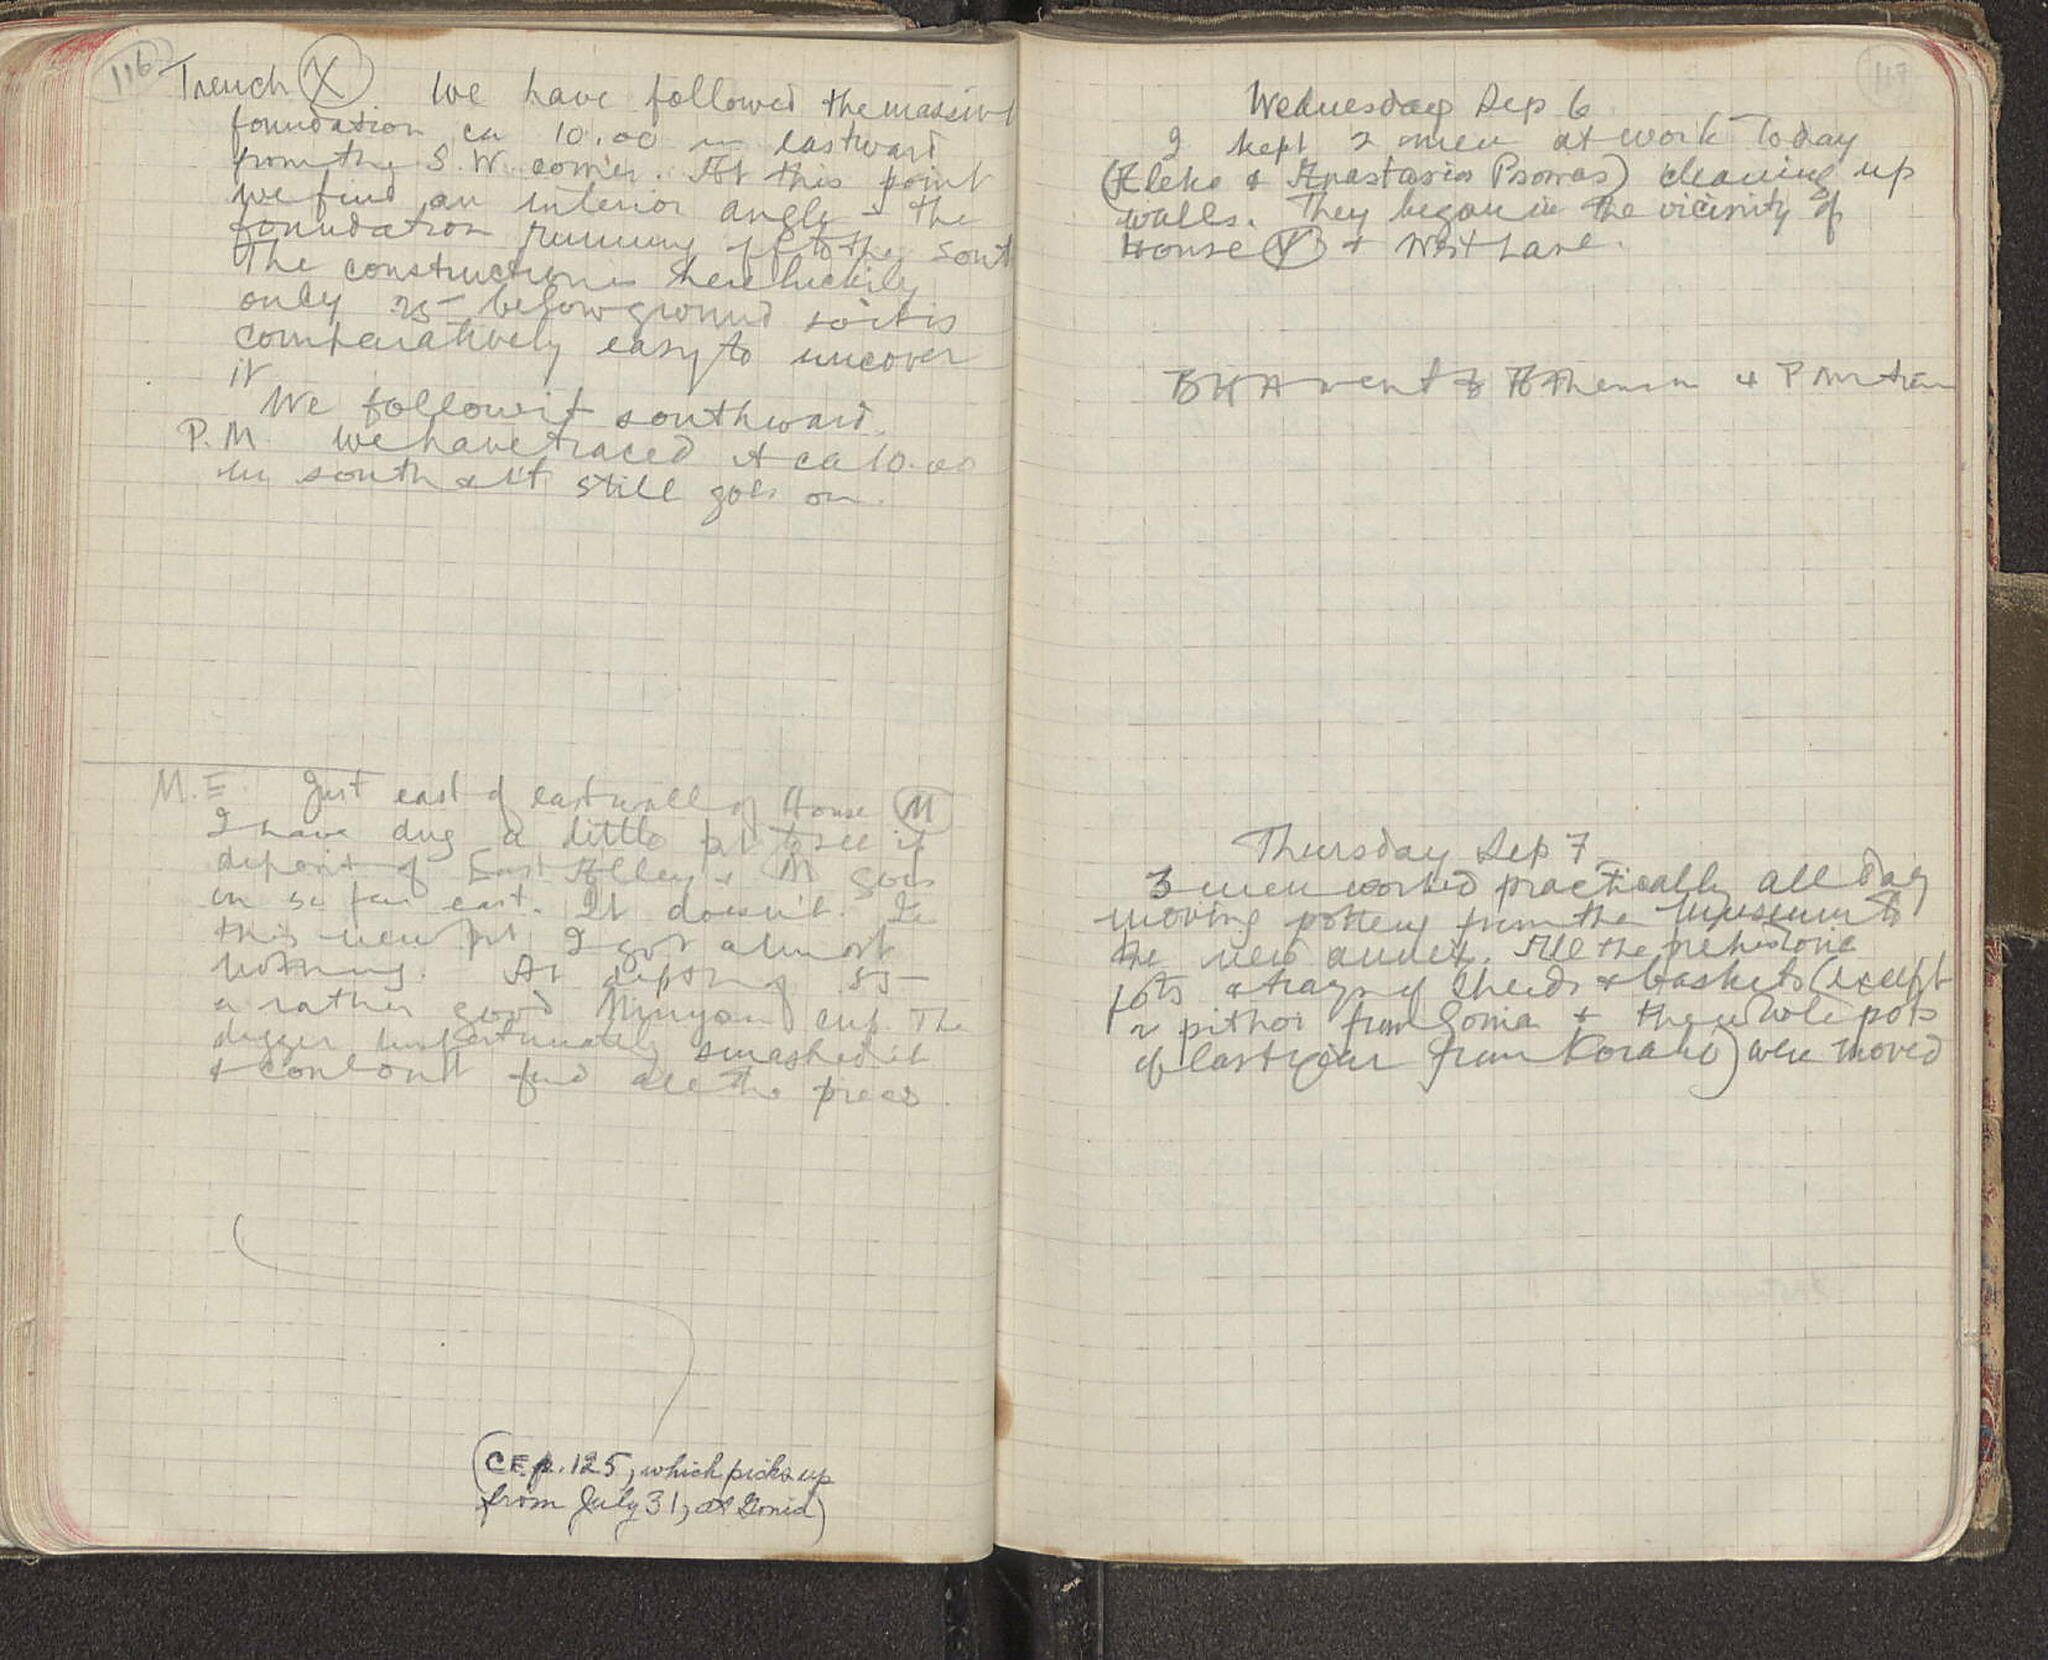 116
Trench X We have followed the massive
foundation ca 10.00 m eastward
from the S.W. corner. At this point
we find an interior angle - the
foundation running off to the south
The construction is here luckily
only 25 below ground so it is
comparatively easy to uncover
it
We follow it southward.
P.M. We have traced it ca 10.00
m south & it still goes on.
M.E. Just east of east wall of House M
I have dug a little pit to see if
deposit of East Alley & M goes
on so far east. It doesn't. In
this new pit I got almost
nothing. At depth of 85
a rather good Minyan cup. The
digger unfortunately smashed it
& couldn't find all the pieces.
(CF. p. 125, which picks up
from July 31, at Gonia)
117
Wednesday Sep 6
I kept 2 men at work today
(Aleko & Anastasios Psomas) cleaning up
walls. They began in the vicinity of
House Y & West Lane.
BHH went to Athens on 4 PM train
Thursday Sep 7
3 men worked practically all day
moving pottery from the Museum to
the new annex. All the prehistoric
pots & trays of sherds & baskets (except
2 pithoi from Gonia & the whole pots
of last year from Korakou) were moved